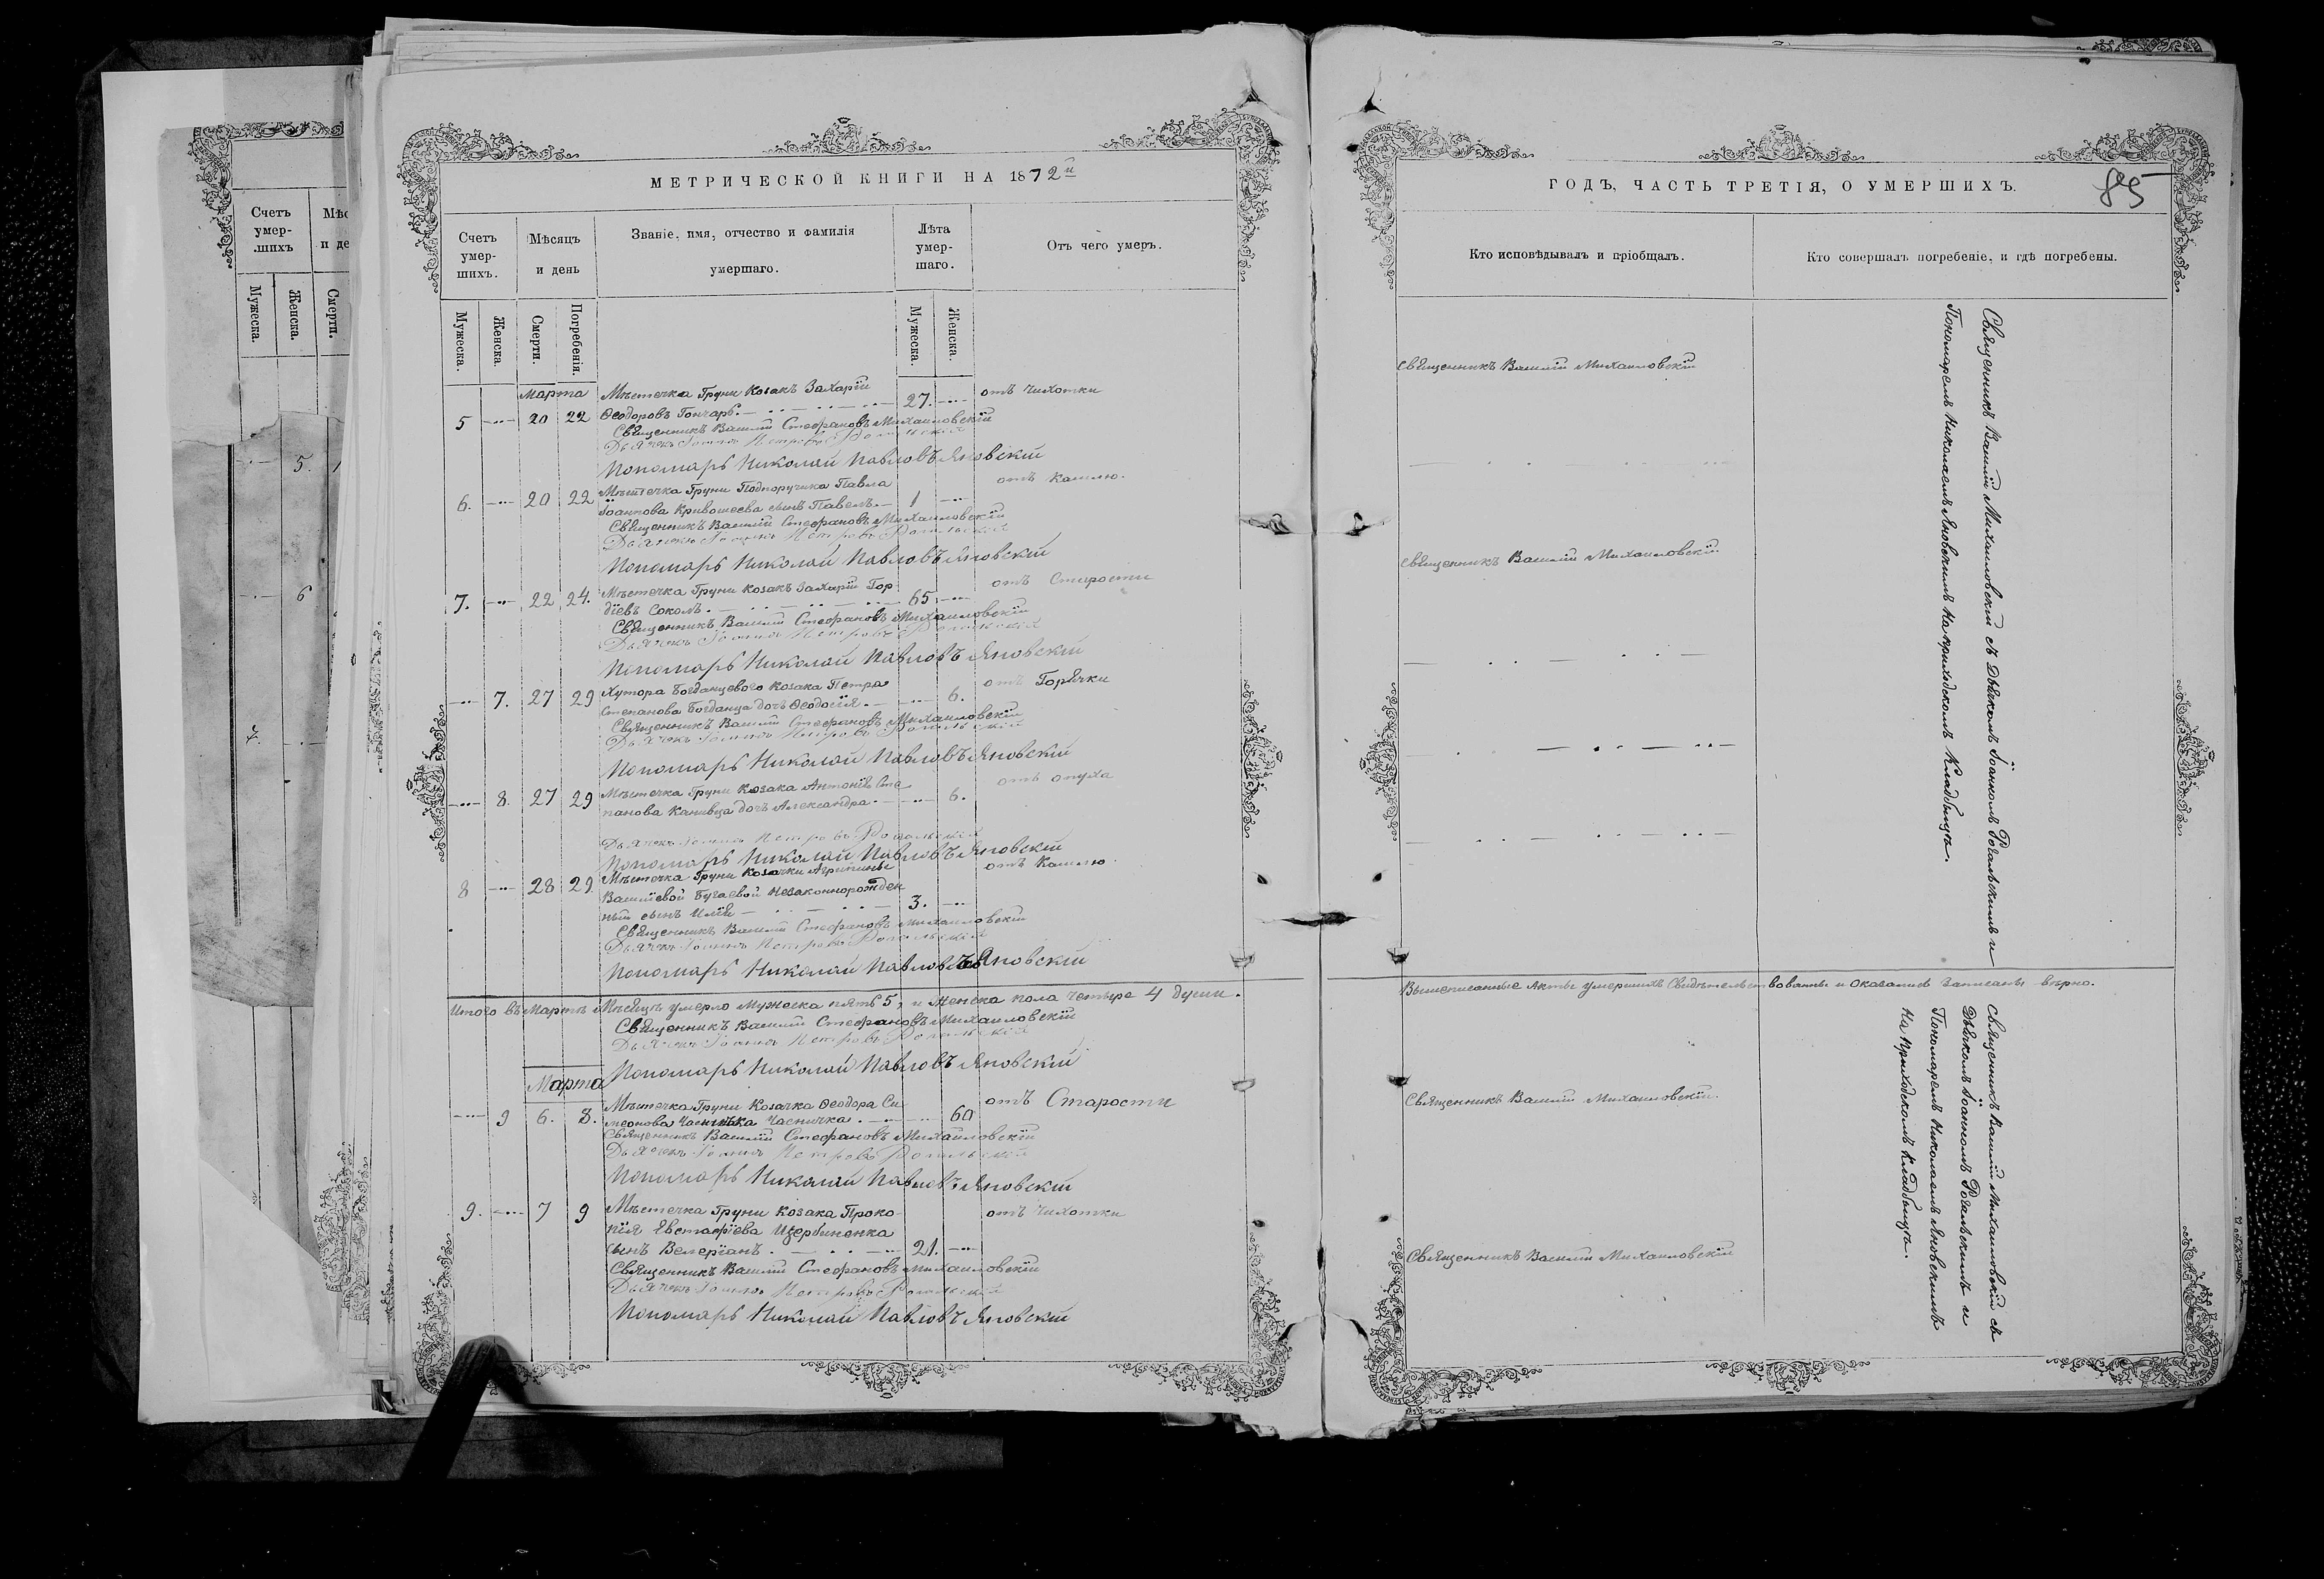 МЕТРИЧЕСКОЙ КНИГИ НА 1872й
Счетъ умер-шихъ.
Мѣсяцъ и день
Званіе, имя, отчество и фамилія умершаго.
Лѣта умер-шаго.
Отъ чего умеръ.
Мужеска.
Женска.
Смерти.
Погребенія.
Мужеска.
Женска.
Марта
Мѣстечка Груни Козакъ Захарій
отъ чихотки
5 20 22 Ѳеодоровъ Гончаръ. 27.
Священникъ Василій Стефановъ Михаиловскій
Дьячекъ Іоаннъ Петровъ
Пономарь Николай Павловъ Яновскій
Мѣстечка Груни Подпоручика Павла
отъ Кашлю.
6. 20 22 Іоаннова Кривошеева сынъ Павелъ. 1
Священникъ Василій Стефановъ Михаиловскій
Дьячекъ Іоаннъ Петровъ
Пономарь Николай Павловъ Яновскій
Мѣстечка Груни Козакъ Захарій Гор
отъ Старости
7. 22 24. діевъ Соколъ. 65
Священникъ Василій Стефановъ Михаиловскій
Дьячекъ Іоаннъ Петровъ
Пономарь Николай Павловъ Яновскій
Хутора Богданцевого Козака Петра
отъ Горячки
7. 27 29 Степанова Богданца дочь Ѳеодосія. 6.
Священникъ Василій Стефановъ Михаиловскій
Дьячекъ Іоаннъ Петровъ
Пономарь Николай Павловъ Яновскій
Мѣстечка Груни Козака Антонія Сте
отъ опуха
8. 27 29 панова Канивца дочь Александра. 6.
Дьячекъ Іоаннъ Петровъ
Пономарь Николай Павловъ Яновскій
Мѣстечка Груни Козачки Агрипины
отъ Кашлю
8 28 29 Василіевой Бугаевой незаконнорожден
ный сынъ Илія 3.
Священникъ Василій Стефановъ Михаиловскій
Дьячекъ Іоаннъ Петровъ
Пономарь Николай Павловъ Яновскій
Итого въ Мартѣ Мѣсяцѣ умерло Мужеска пять 5, и Женска пола четыре 4 души.
Священникъ Василій Стефановъ Михаиловскій
Дьячекъ Іоаннъ Петровъ
Пономарь Николай Павловъ Яновскій
Марта
Мѣстечка Груни Козачка Ѳеодора Си
отъ Старости
9 6. 8. меонова Часничка. 60
Священникъ Василій Стефановъ Михаиловскій
Дьячекъ Іоаннъ Петровъ
Пономарь Николай Павловъ Яновскій
9. 7 9 Мѣстечка Груни Козака Проко
отъ чихотки
пія Евстафіева Щербиненка
сынъ Велеріанъ. 21.
Священникъ Василій Стефановъ Михаиловскій
Дьячекъ Іоаннъ Петровъ
Пономарь Николай Павловъ Яновскій
ГОДЪ, ЧАСТЬ ТРЕТІЯ, О УМЕРШИХЪ.
Кто исповѣдывалъ и пріобщалъ.
Кто совершалъ погребеніе, и гдѣ погребены.
Священникъ Василій Михаиловскій
Священникъ Василій Михаиловскій
Священникъ Василій Михаиловскій съ Дьякомъ Іоанномъ Рогальскимъ и
Пономаремъ Николаемъ Яновскимъ на приходскомъ Кладбищѣ.
Вышеписанные Акты умершихъ Свидѣтельствованны и оказались Записаны вѣрно.
Священникъ Василій Михаиловскій.
Священникъ Василій Михаиловскій
Священникъ Василій Михаиловскій съ
Дьячкомъ Іоанномъ Рогальскимъ и
Пономаремъ Николаемъ Яновскимъ
на приходскомъ Кладбищѣ.
Счетъ умер-шихъ
Мужеска.
Женска.
Смерти.
5.
6
7.